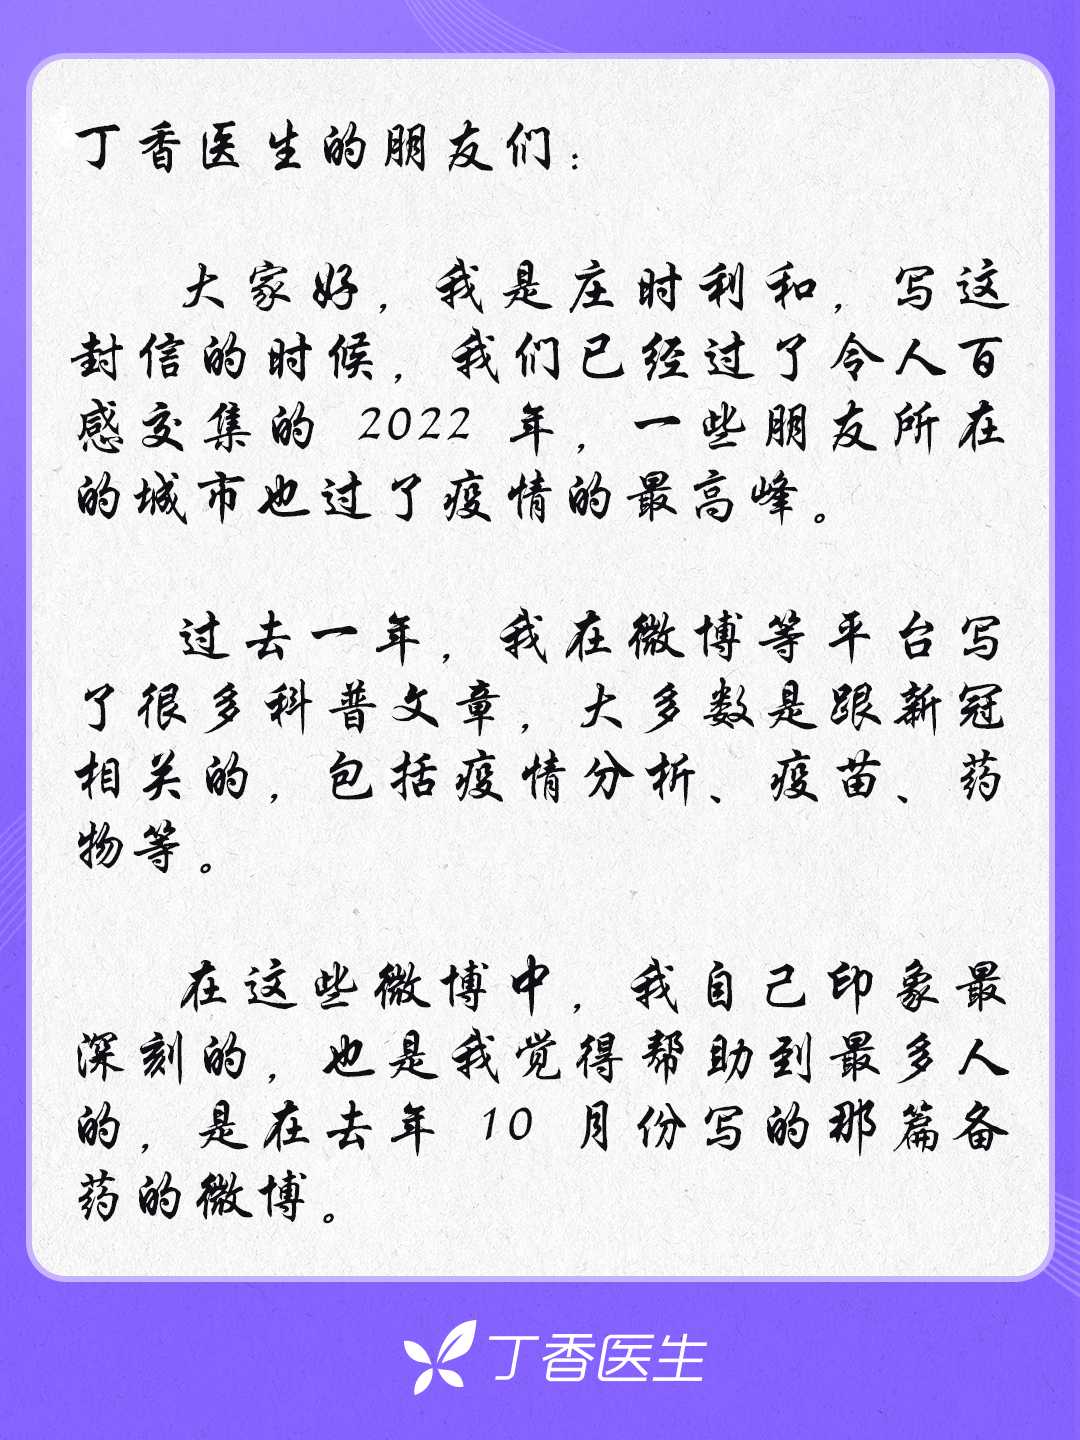 丁香医生的朋友们：
大家好，我是庄时利和，写这
封信的时候，我们已经过了令人百
感交集的 2022 年，一些朋友所在
的城市也过了疫情的最高峰。
过去一年，我在微博等平台写
了很多科普文章，大多数是跟新冠
相关的，包括疫情分析、疫苗、药
物等。
在这些微博中，我自己印象最
深刻的，也是我觉得帮助到最多人
的，是在去年 10 月份写的那篇备
药的微博。
丁香医生